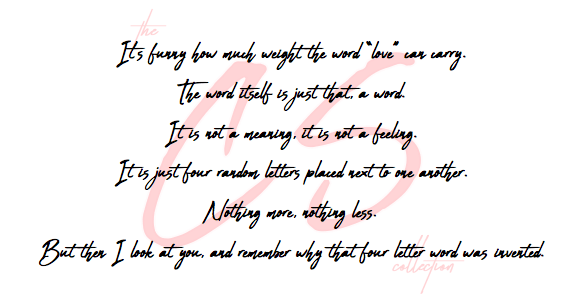 the
It's funny how much weight the word "love" can carry.
CS
The word itself is just that, a word.
It is not a meaning, it is not a feeling.
It is just four random letters placed next to one another.
Nothing more, nothing less.
But then I look at you, and remember why that four letter word was invented.
collection